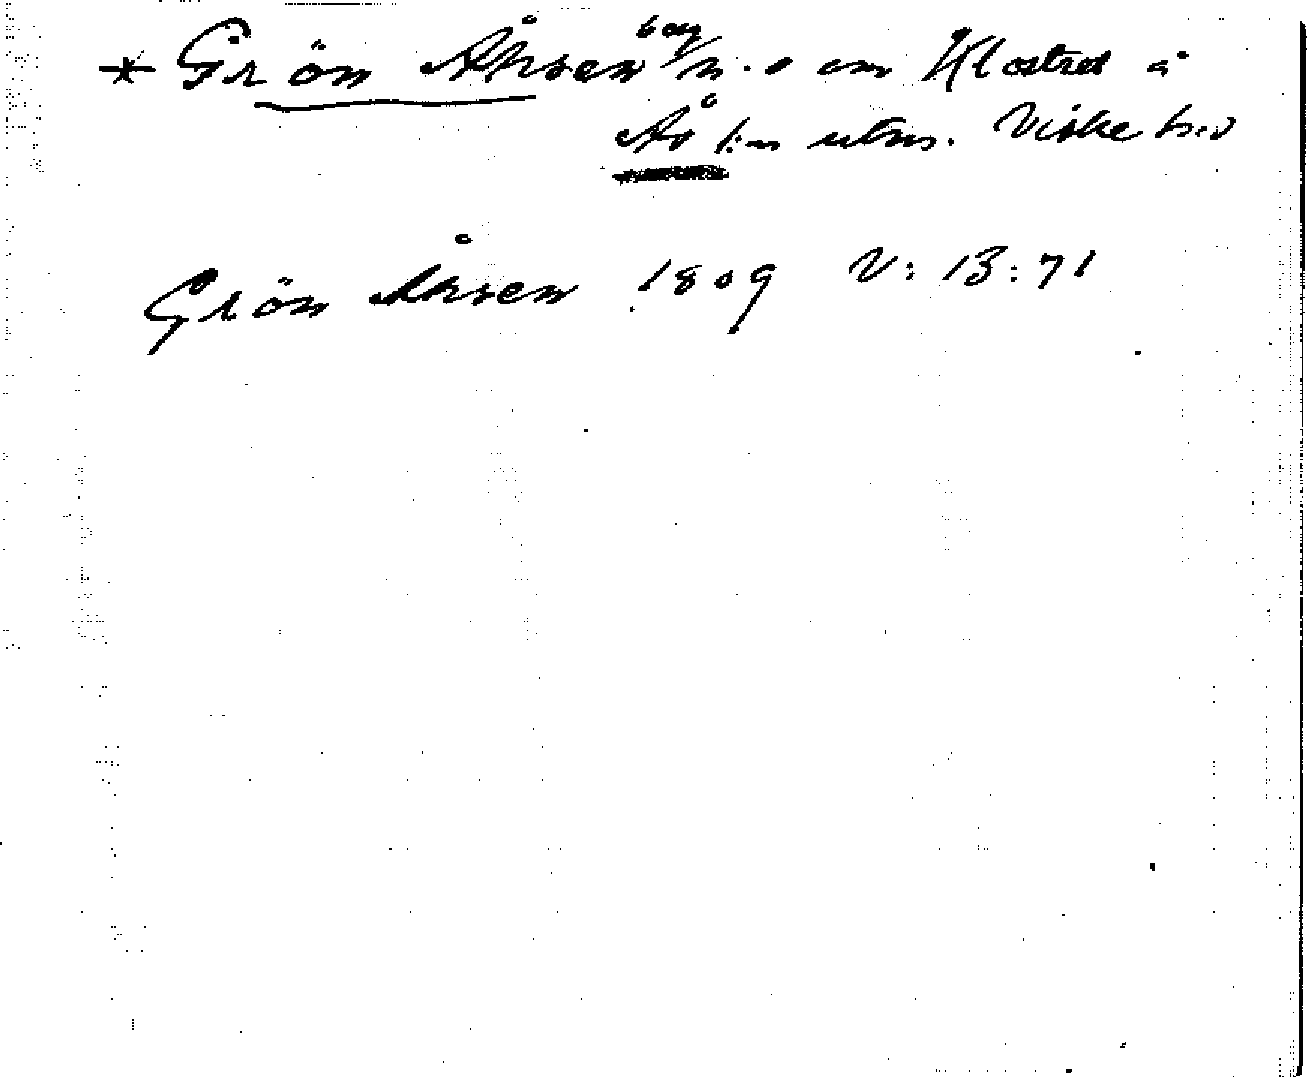 * Grön Åhsen bag n.o om Klostret å
Ås k:as utm. Viske h:d
Grön Åhsen 1809 V: 13:71